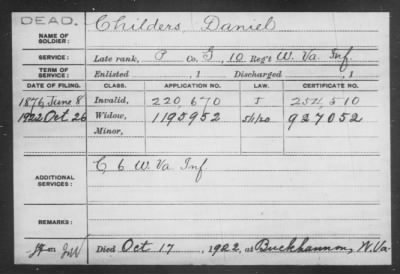 DEAD.
NAME OF SOLDIER: Childers, Daniel
SERVICE: Late rank, P Co. G, 10 Reg't W. Va. Inf.
TERM OF SERVICE: Enlisted , 1 Discharged , 1
DATE OF FILING. CLASS. APPLICATION NO. LAW. CERTIFICATE NO.
1876, June 8 Invalid, 220,670 510
1922 Oct 26 Widow, 1195952 5/1/20 927052
Minor,
ADDITIONAL SERVICES: C, 6 W. Va Inf
REMARKS:
Died Oct 17, 1922, at Buckhannon, W. Va.